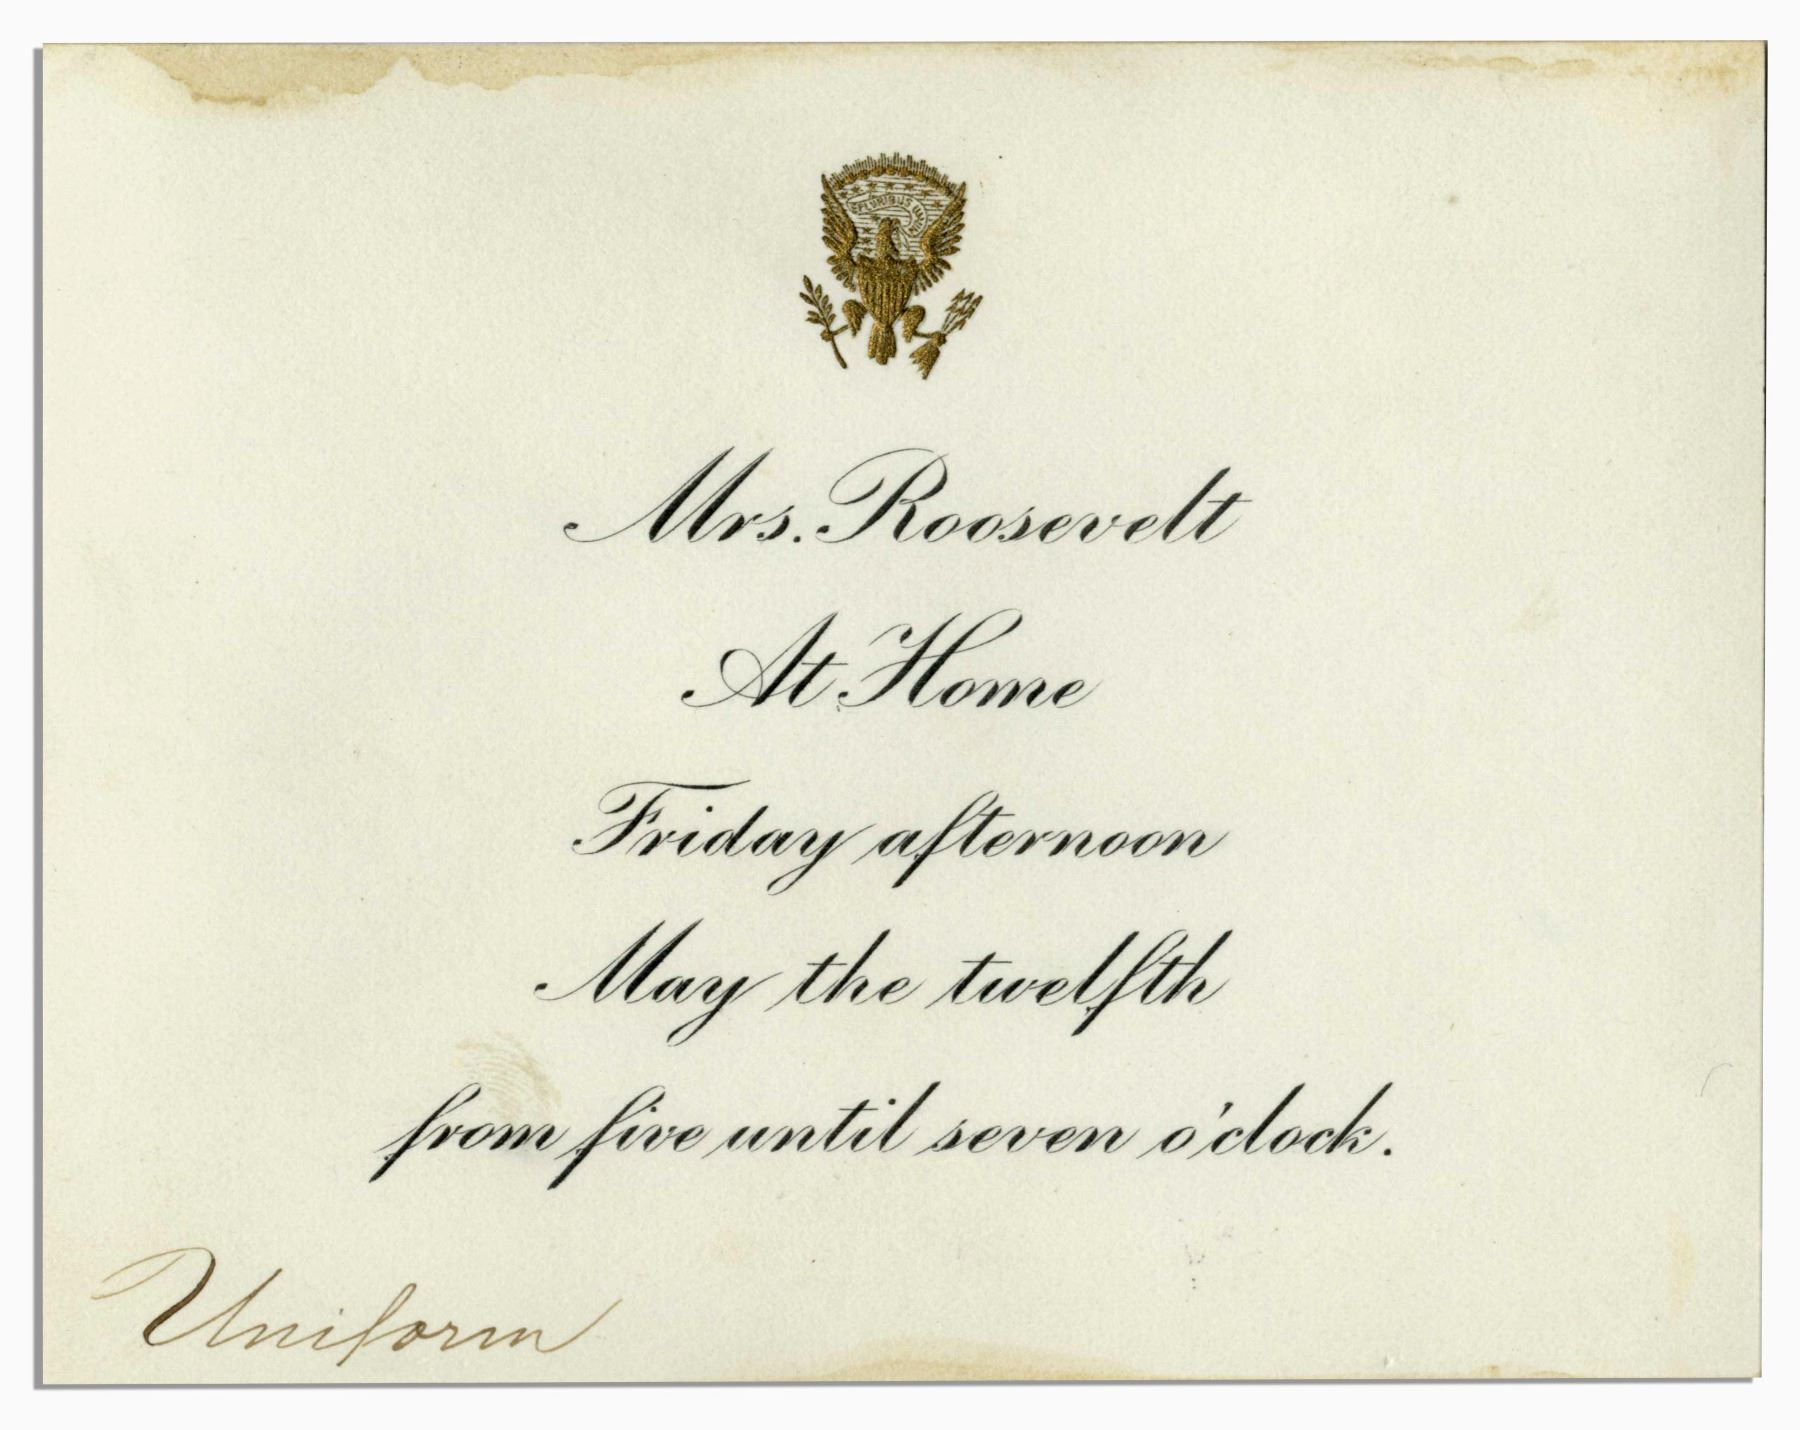 E PLURIBUS UNUM
Mrs. Roosevelt
At Home
Friday afternoon
May the twelfth
from five until seven o'clock.
Uniform